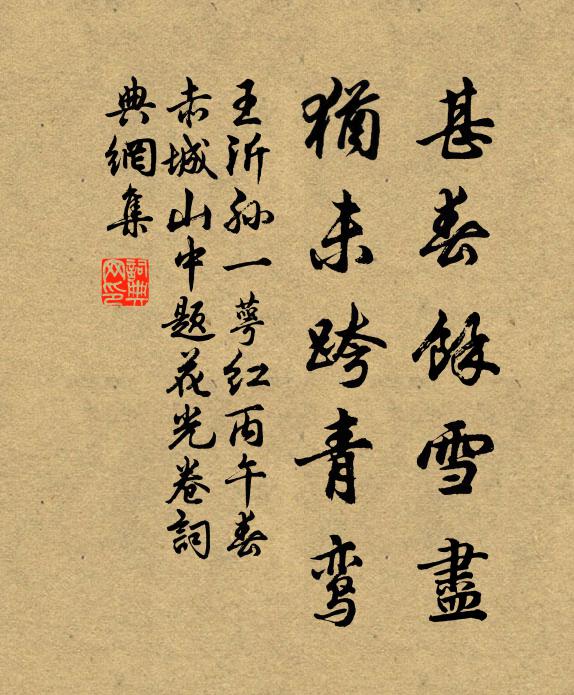 甚春餘雪盡
猶未跨青鸾
王沂孙一萼红丙午春
赤城山中题花光卷詞
典網集
詞典
网印